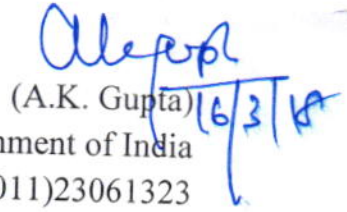 (A.K. Gupta)
16/3/18
nment of India
011)23061323